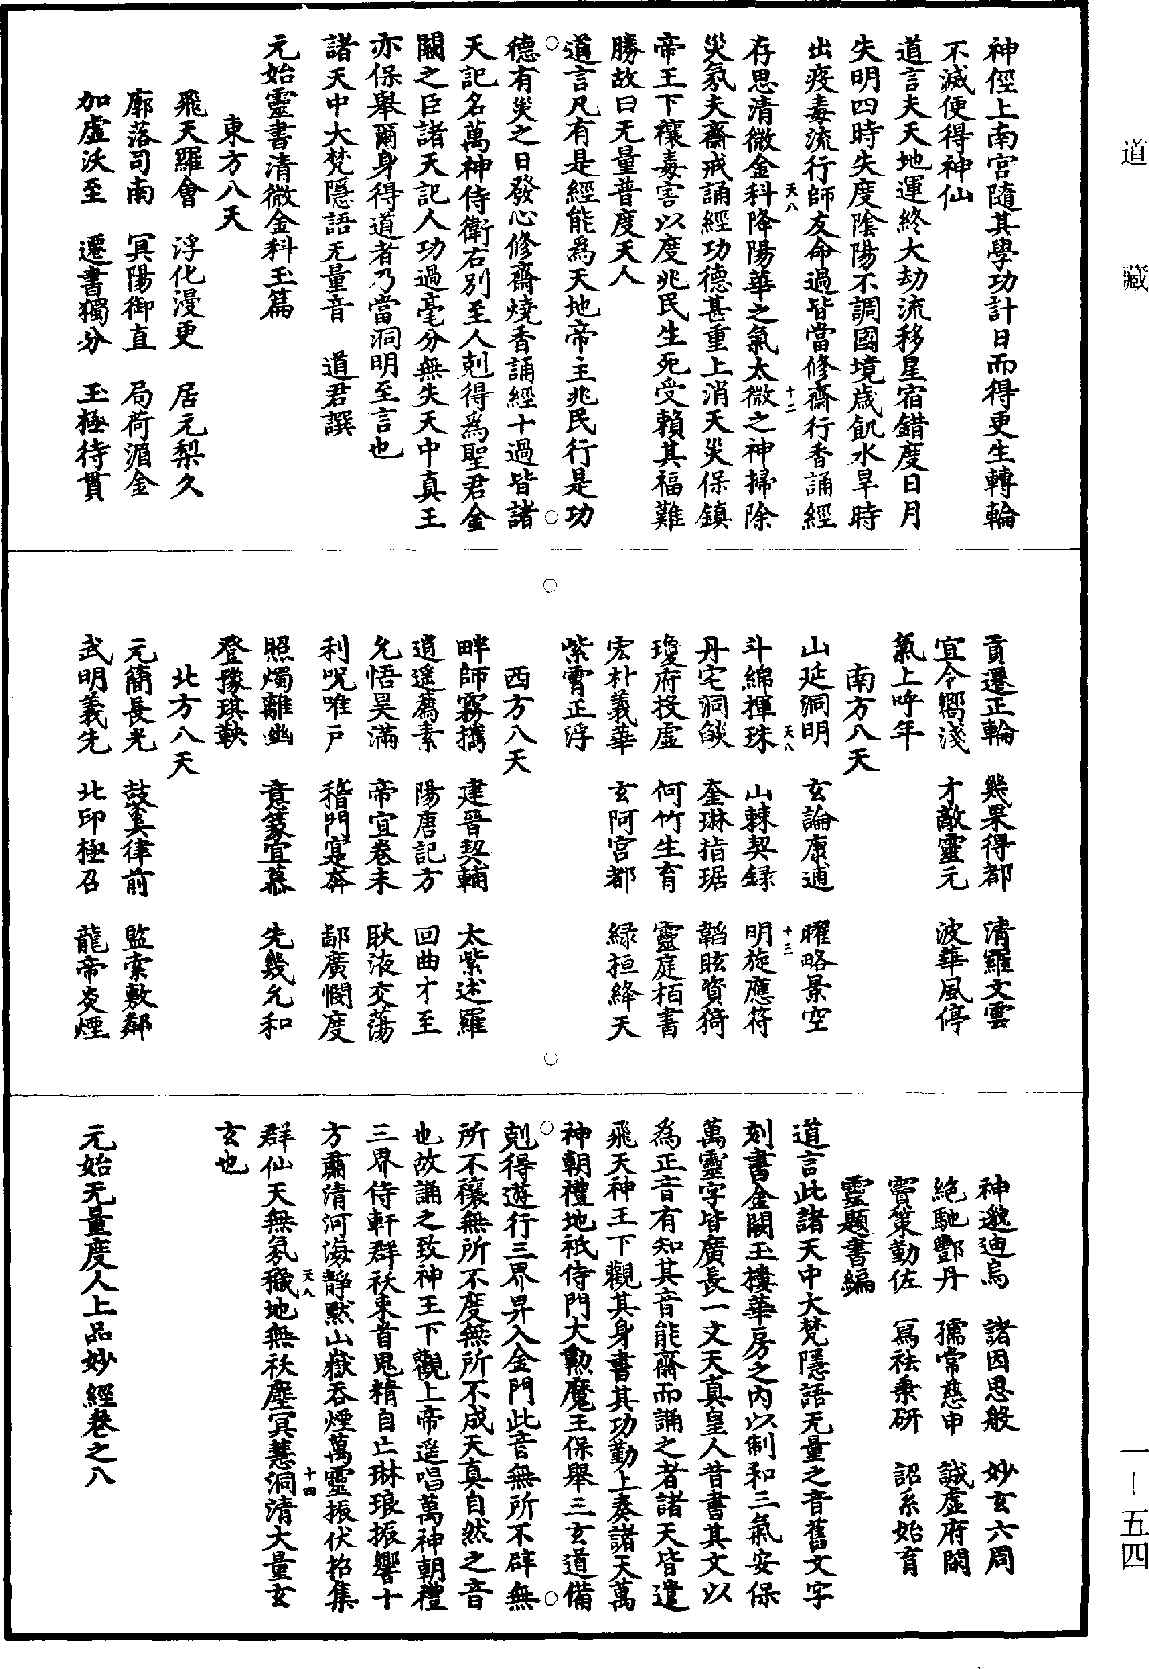 道藏
一—五四
神徑上南宮隨其學功計日而得更生轉輪
不滅便得神仙
道言夫天地運終大劫流移星宿錯度日月
失明四時失度陰陽不調國境歲飢水旱時
出疫毒流行師友命過皆當修齋行香誦經
天八
十二
存思清微金科降陽華之氣太微之神掃除
災氛夫齋戒誦經功德甚重上消天災保鎮
帝王下穰毒害以度兆民生死受賴其福難
勝故曰无量普度天人
道言凡有是經能爲天地帝主兆民行是功
德有災之日發心修齋燒香誦經十過皆諸
天記名萬神侍衛右別至人剋得爲聖君金
闕之臣諸天記人功過毫分無失天中真王
亦保舉爾身得道者乃當洞明至言也
諸天中大梵隱語无量音 道君譔
元始靈書清微金科玉篇
東方八天
飛天羅會 浮化漫更 居元梨久
廓落司南 冥陽御直 局荷湄金
加虛沃至 遷書獨分 玉極待貫
貢遷正輪 幾果得都 清羅文雲
宜令嚮淺 才敵靈元 波華風停
氣上呼年
南方八天
山延洞明 玄論康逋 曜略景空
天八
十三
斗綿揮珠 山棘契錄 明旋應符
丹宅洞皝 奎琳指琚 韜眩資猗
瓊府投虛 何竹生育 靈庭栢書
宏朴義華 玄阿宮都 緑桓絳天
紫霄正浮
西方八天
畔師霧攜 建晉契輔 太紫述羅
逍遥薦素 陽唐記方 回曲才至
允悟昊滿 帝宜卷未 耿液交蕩
利呪唯戸 稽門寔奔 鄗廣憫度
照燭離幽 意篆宣慕 先幾允和
登豫琪軮
北方八天
元簡長光 鼓奚律前 監索敷鄰
武明義先 北印極召 龍帝炎煙
神邀迪烏 諸因思般 妙玄六周
絶馳酆丹 孺常慈申 誠虛府閞
賓策勤佐 寫祛乘研 詔系始育
靈題書編
道言此諸天中大梵隱語无量之音舊文字
刻書金闕玉樓華房之内以制和三氣安保
萬靈字皆廣長一文天真皇人昔書其文以
為正音有知其音能齋而誦之者諸天皆遣
飛天神王下觀其身書其功勤上奏諸天萬
神朝禮地祇侍門大勳魔王保舉三玄道備
剋得遊行三界昇入金門此音無所不辟無
所不禳無所不度無所不成天真自然之音
也故誦之致神王下觀上帝遥唱萬神朝禮
三界侍軒群祅束首鬼精自亡琳琅振響十
方肅清河海靜默山嶽吞煙萬靈振伏招集
天八
十四
群仙天無氛穢地無祅塵冥慧洞清大量玄
玄也
元始无量度人上品妙經卷之八